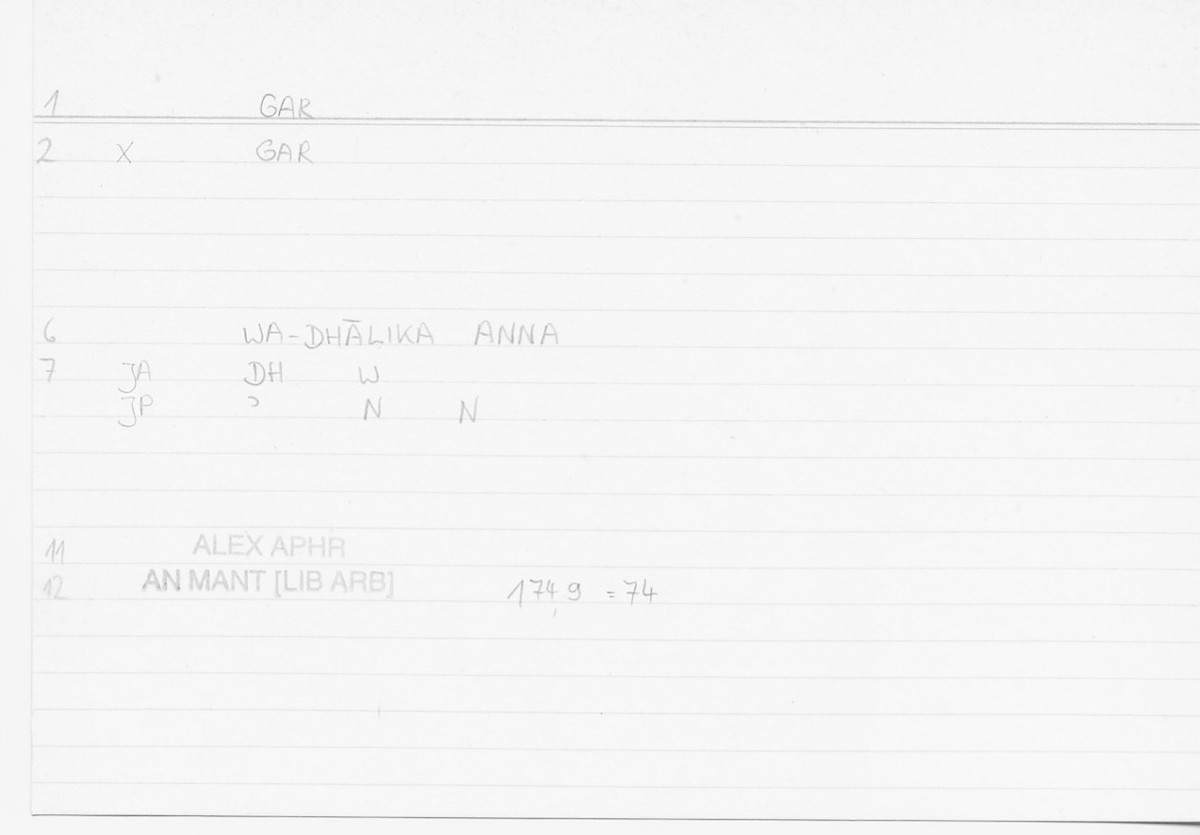 1 GAR
2 X GAR
6 WA-DHĀLIKA ANNA
7 JA DH W
JP ɔ N N
11 ALEX APHR
12 AN MANT [LIB ARB] 174,9 = 74